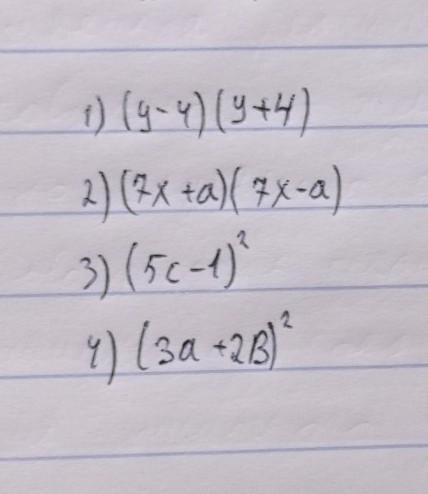 1) (y-4)(y+4)
2) (7x+a)(7x-a)
3) (5c-1)²
4) (3a+2B)²